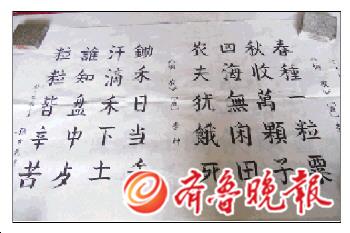 春種一粒粟
秋收萬顆子
四海無閑田
农夫犹餓死
鋤禾日当午
汗滴禾下土
誰知盘中歺
粒粒皆辛苦
齐鲁晚报